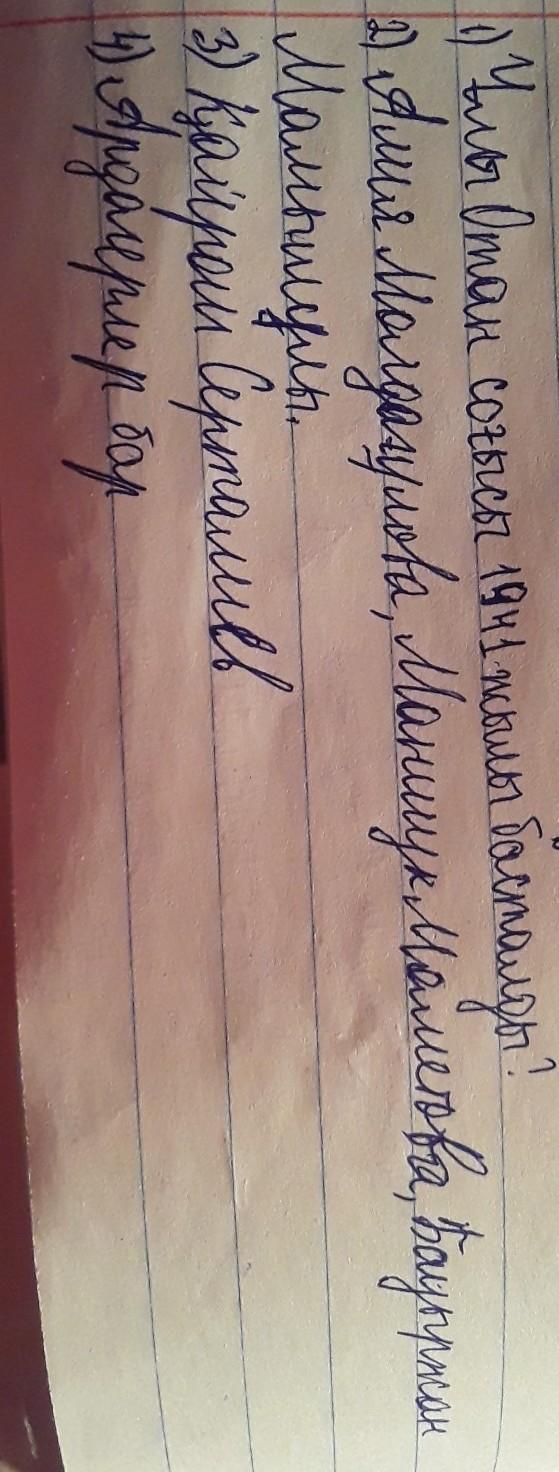 1) Ұлы Отан соғысы 1941 жылы басталды?
2) Әлия Молдағұлова, Маншук Маметова, Бауыржан
Момышұлы.
3) Қайрат Серталиев
4) Ардагерлер бар